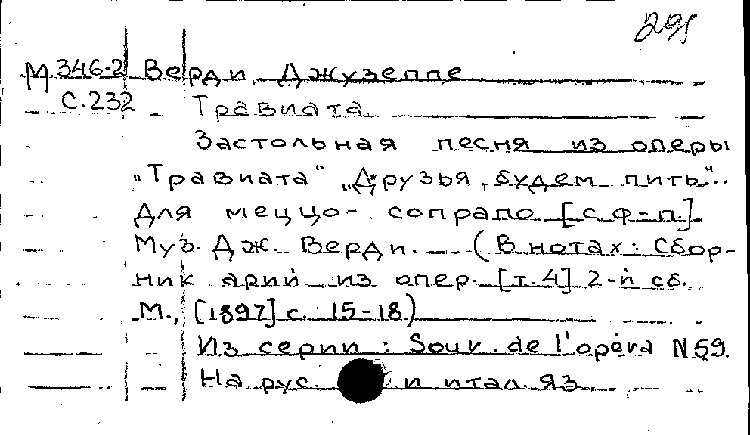 291
М 346-2 Верди, Джузеппе
с. 232 Травиата
Застольная песня из оперы
"Травиата" "Друзья, будем пить"..
Для меццо-сопрано [с ф-п.]
Муз. Дж. Верди. (В нотах: Сбор-
ник арий из опер. [т. 4] 2-й сб.
М., [1897] с. 15-18)
Из серии: Souv. de l'opéra N 59.
На рус. и итал. яз.